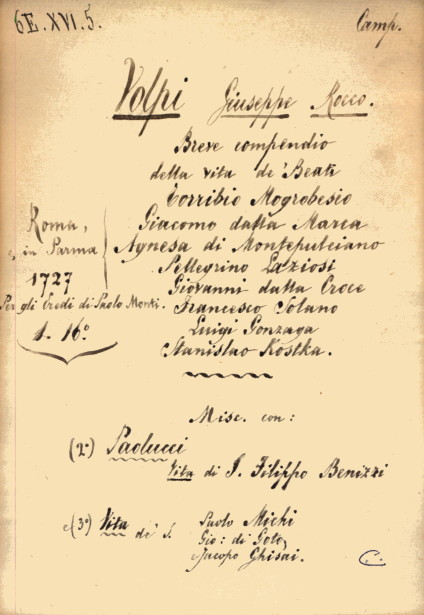 6E.XVI.5.
Camp.
Volpi Giuseppe Rocco.
Breve compendio
della vita de' Beati
Torribio Mogrobesio
Giacomo dalla Marca
Agnesa di Montepulciano
Pellegrino Laziosi
Giovanni dalla Croce
Francesco Solano
Luigi Gonzaga
Stanislao Kostka.
Roma,
e, in Parma
1727
Per gli Eredi di Paolo Monti.
1. 16º
Misc. con:
(2º) Paolucci
Vita di S. Filippo Benizzi
e (3º) Vita de' S. Paolo Michi
Gio: di Goto,
e Jacopo Ghisai.
C.